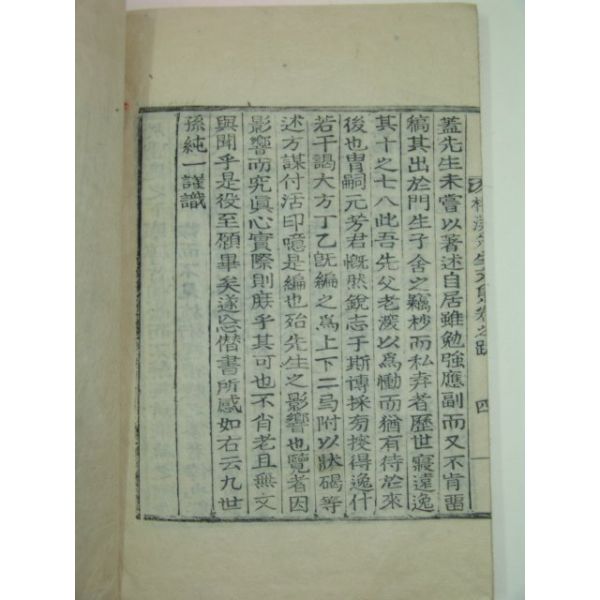 蓋先生未嘗以著述自居雖勉強應副而又不肯畱
稿其出於門生子舍之竊杪而私弆者歷世寢遠逸
其十之七八此吾先父老深以爲慟而猶有待於來
後也胄嗣元芳君慨然銳志于斯博採旁搜得逸什
若干謁大方丁乙旣編之爲上下二弓附以狀碣等
述方謀付活印噫是編也殆先生之影響也覽者因
影響而究眞心實際則庶乎其可也不肖老且無文
與聞乎是役至願畢矣遂忘僭書所感如右云九世
孫純一謹識
先生文集卷之跋
四